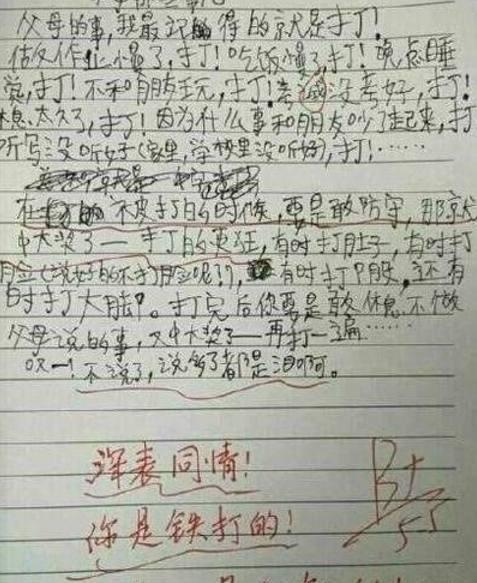 父母的事，我最记得的就是打！
做作业慢了，打！吃饭慢了，打！晚点睡
觉，打！不和朋友玩，打！考试没考好，打！
休息太久了，打！因为什么事和朋友吵了起来，打
听写没听好(家里，学校里没听好)，打！……
在被打的时候，要是敢防守，那就
中大奖了——打的更狂，有时打肚子，有时打
脸(说好的不打脸呢?!)，有时打腿，还有
时打大腿。打完后你要是敢休息不做
父母说的事，又中大奖了——再打一遍……
哎一！不说了，说多了都是泪啊。
深表同情！
你是铁打的！
B+